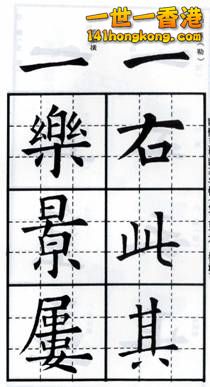 一世一香港
141hongkong.com
（勒）
一
右
此
其
横
一
樂
景
屢